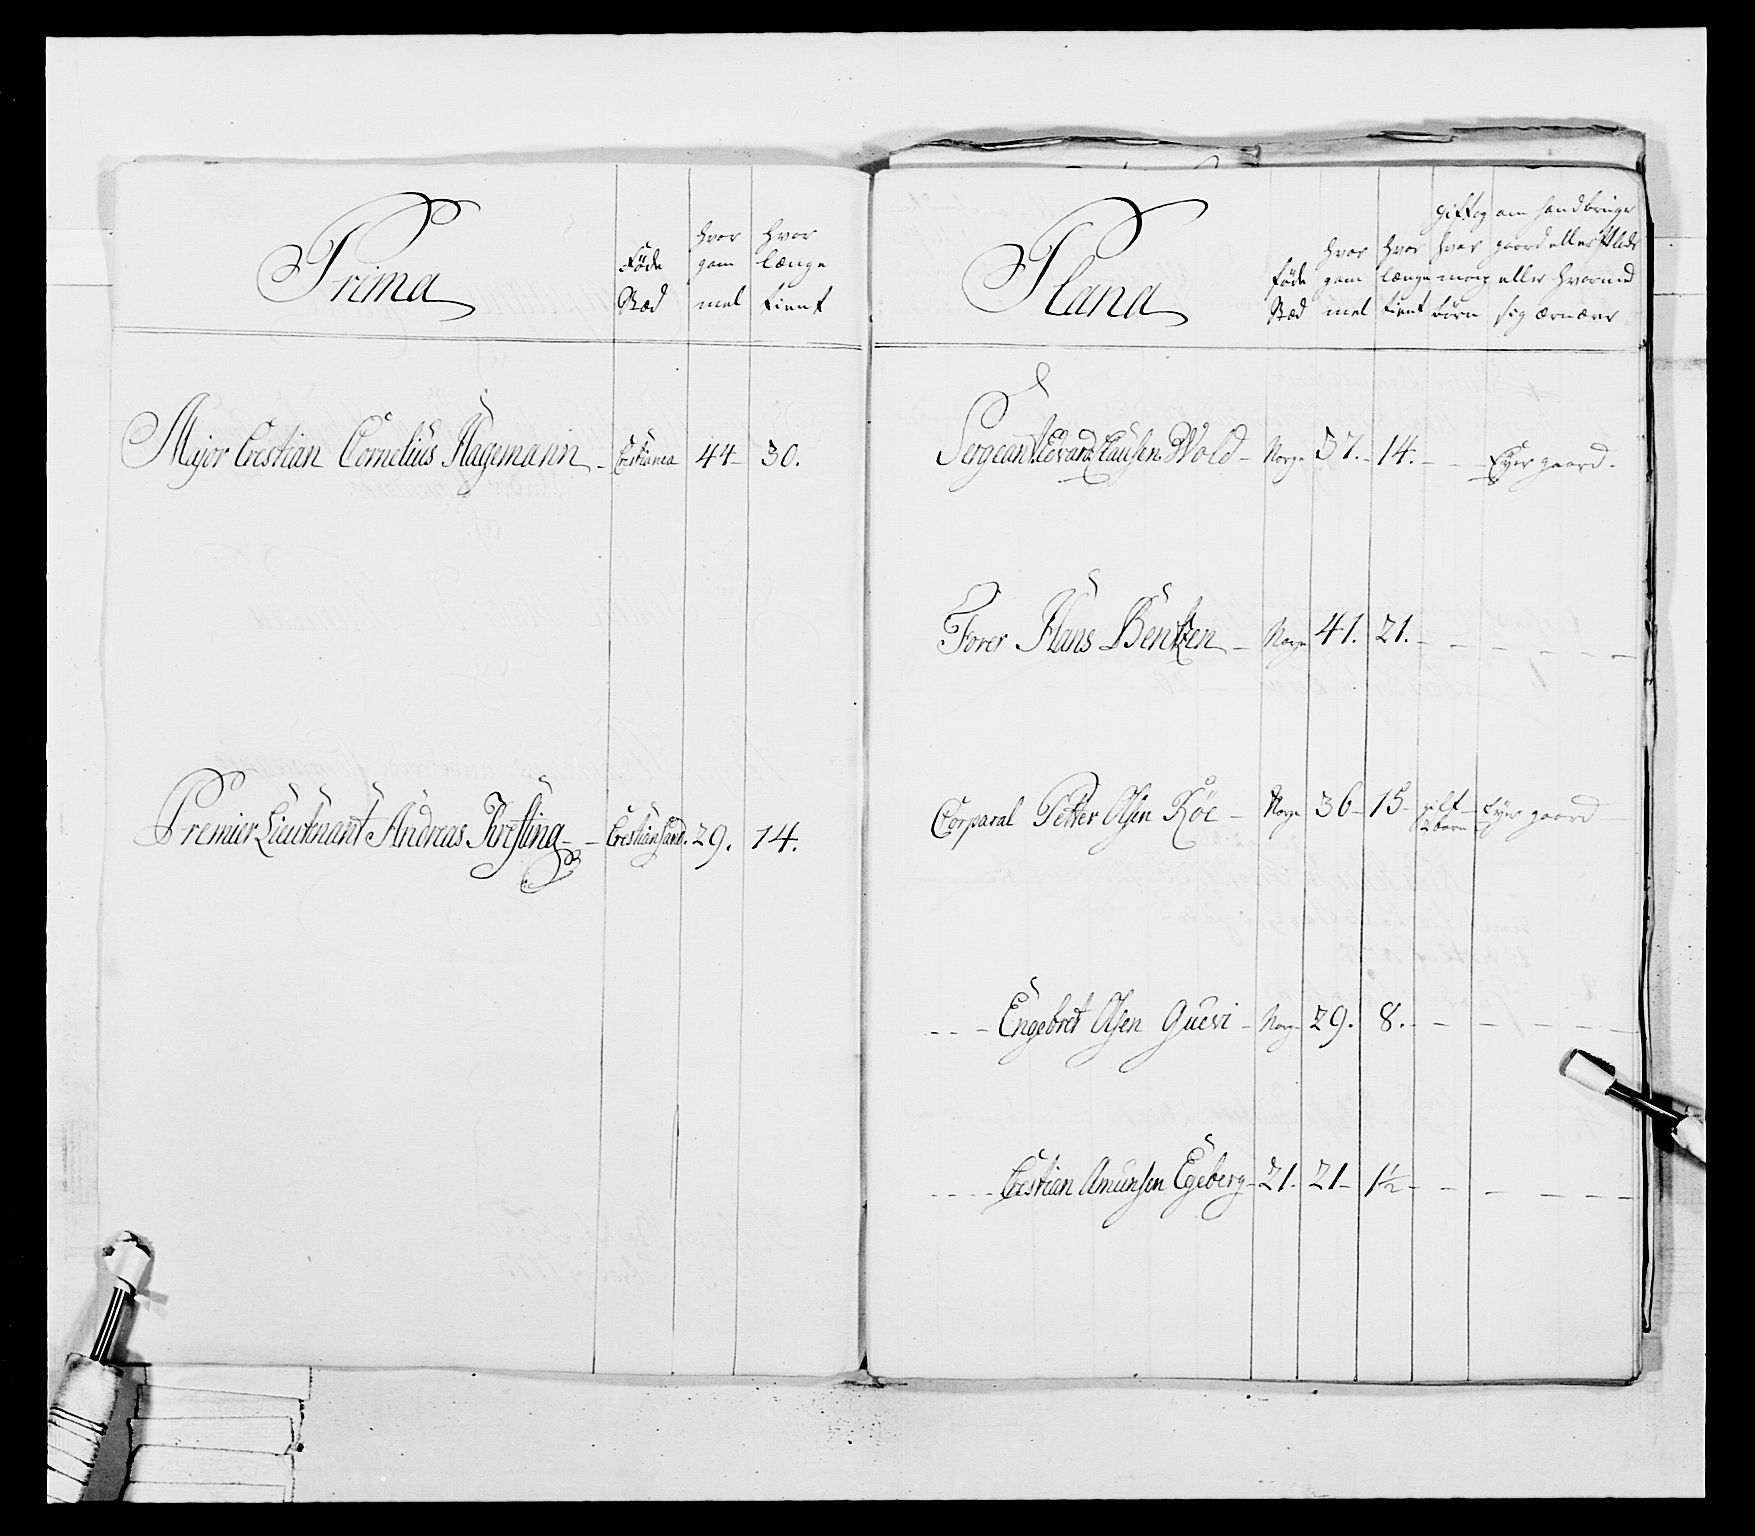 Prima
Føde Stæd
hvor gam mel
hvor længe tient
Major Crestian Cornelius Hagemann – Crestiania 44 – 30.
Premier Lieutenant Andreas Kresting – – Crestiansand. 29. 14.
Plana
føde Stæd
hvor gam mel
hvor længe tient
gift og hvor mang børn
om hand bruger gaard eller Plads eller hvormed sig ærnærer
Sergeant Edvard Clausen Wold – Norge 37. – 14. – – – Eyer gaard.
Forer Hans Bentzen – Norge 41. 21. – – – – – –
Corporal Petter Olsen Röe – Norge 36 – 15 – gift 2 børn – Eyer gaard –
– – – Engebret Olsen Guevi – Norge 29. 8. – – – – – –
– – – – Crestian Amunsen Egeberg – 21. 21 – 1½ – – – – – –